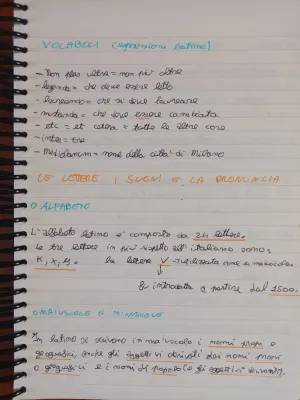 VOCABOLI (espressioni latine)
- Non plus ultra = non più oltre
- legenda = che deve essere letto
- laureando = che si deve laureare
- mutanda = che deve essere cambiata
- etc = et cetera = tutte le altre cose
- inter = tra
- Mediolanum = nome della città di Milano
LE LETTERE, I SUONI E LA PRONUNCIA
ALFABETO
L'alfabeto latino è composto da 24 lettere.
Le tre lettere in più rispetto all'italiano sono:
K, X, Y. la lettera V → utilizzata
introdotta a partire dal 1500.
MAIUSCOLE E MINUSCOLE
In latino si scrivono in maiuscolo i nomi propri e
geografici, anche gli aggettivi derivati dei nomi propri
o geografici e i nomi di popolo (e gli aggettivi